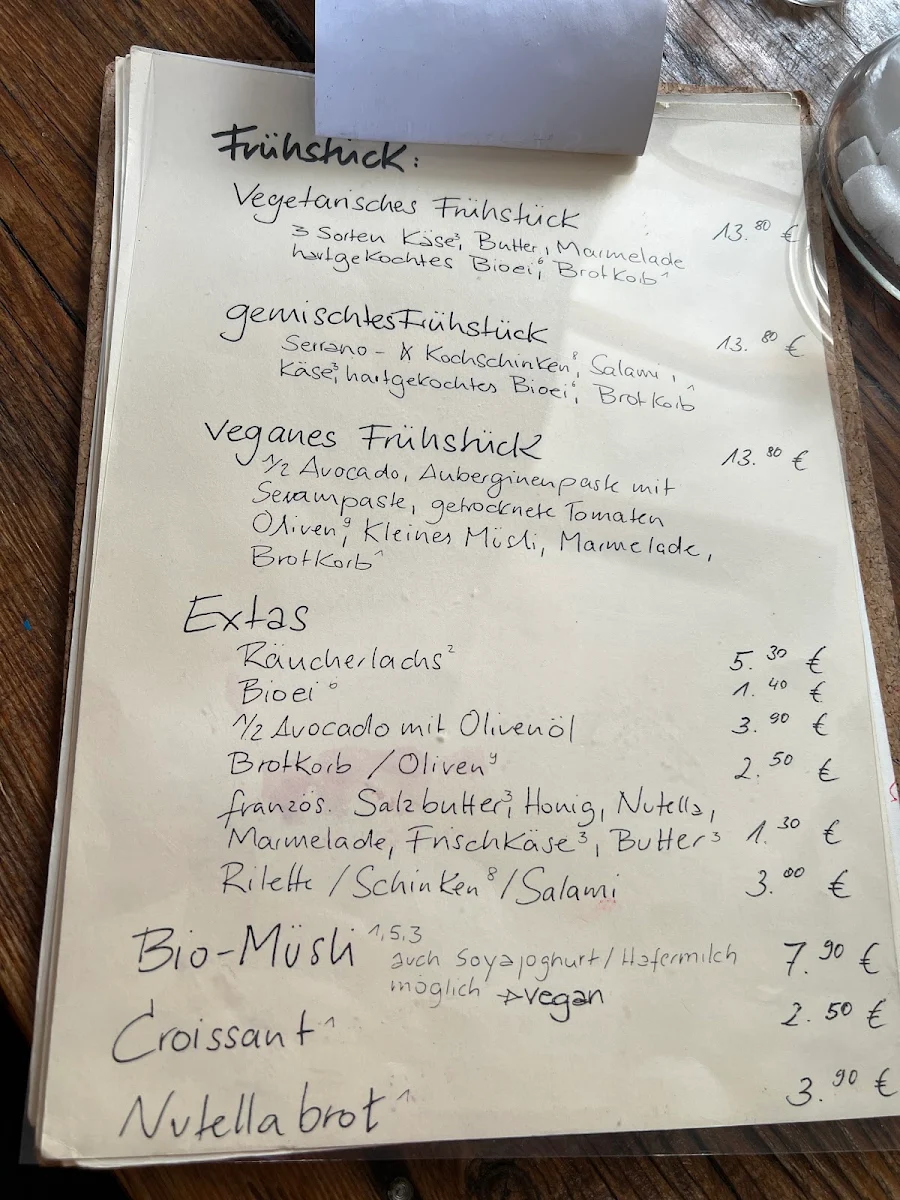 Frühstück:
Vegetarisches Frühstück 13.80 €
3 Sorten Käse³, Butter, Marmelade
hartgekochtes Bioei⁶, Brotkorb¹
gemischtes Frühstück 13.80 €
Serrano- & Kochschinken⁸, Salami,
Käse³, hartgekochtes Bioei⁶, Brotkorb¹
Veganes Frühstück 13.80 €
1/2 Avocado, Auberginenpaste mit
Sesampaste, getrocknete Tomaten
Oliven⁹, Kleines Müsli, Marmelade,
Brotkorb¹
Extas
Räucherlachs² 5.30 €
Bioei⁶ 1.40 €
1/2 Avocado mit Olivenöl 3.90 €
Brotkorb / Oliven⁹ 2.50 €
französ. Salzbutter³, Honig, Nutella,
Marmelade, Frischkäse³, Butter³ 1.30 €
Rilette / Schinken⁸ / Salami 3.00 €
Bio-Müsli ¹,⁵,³ 7.90 €
auch Soyajoghurt / Hafermilch
möglich → vegan
Croissant¹ 2.50 €
Nutellabrot¹ 3.90 €